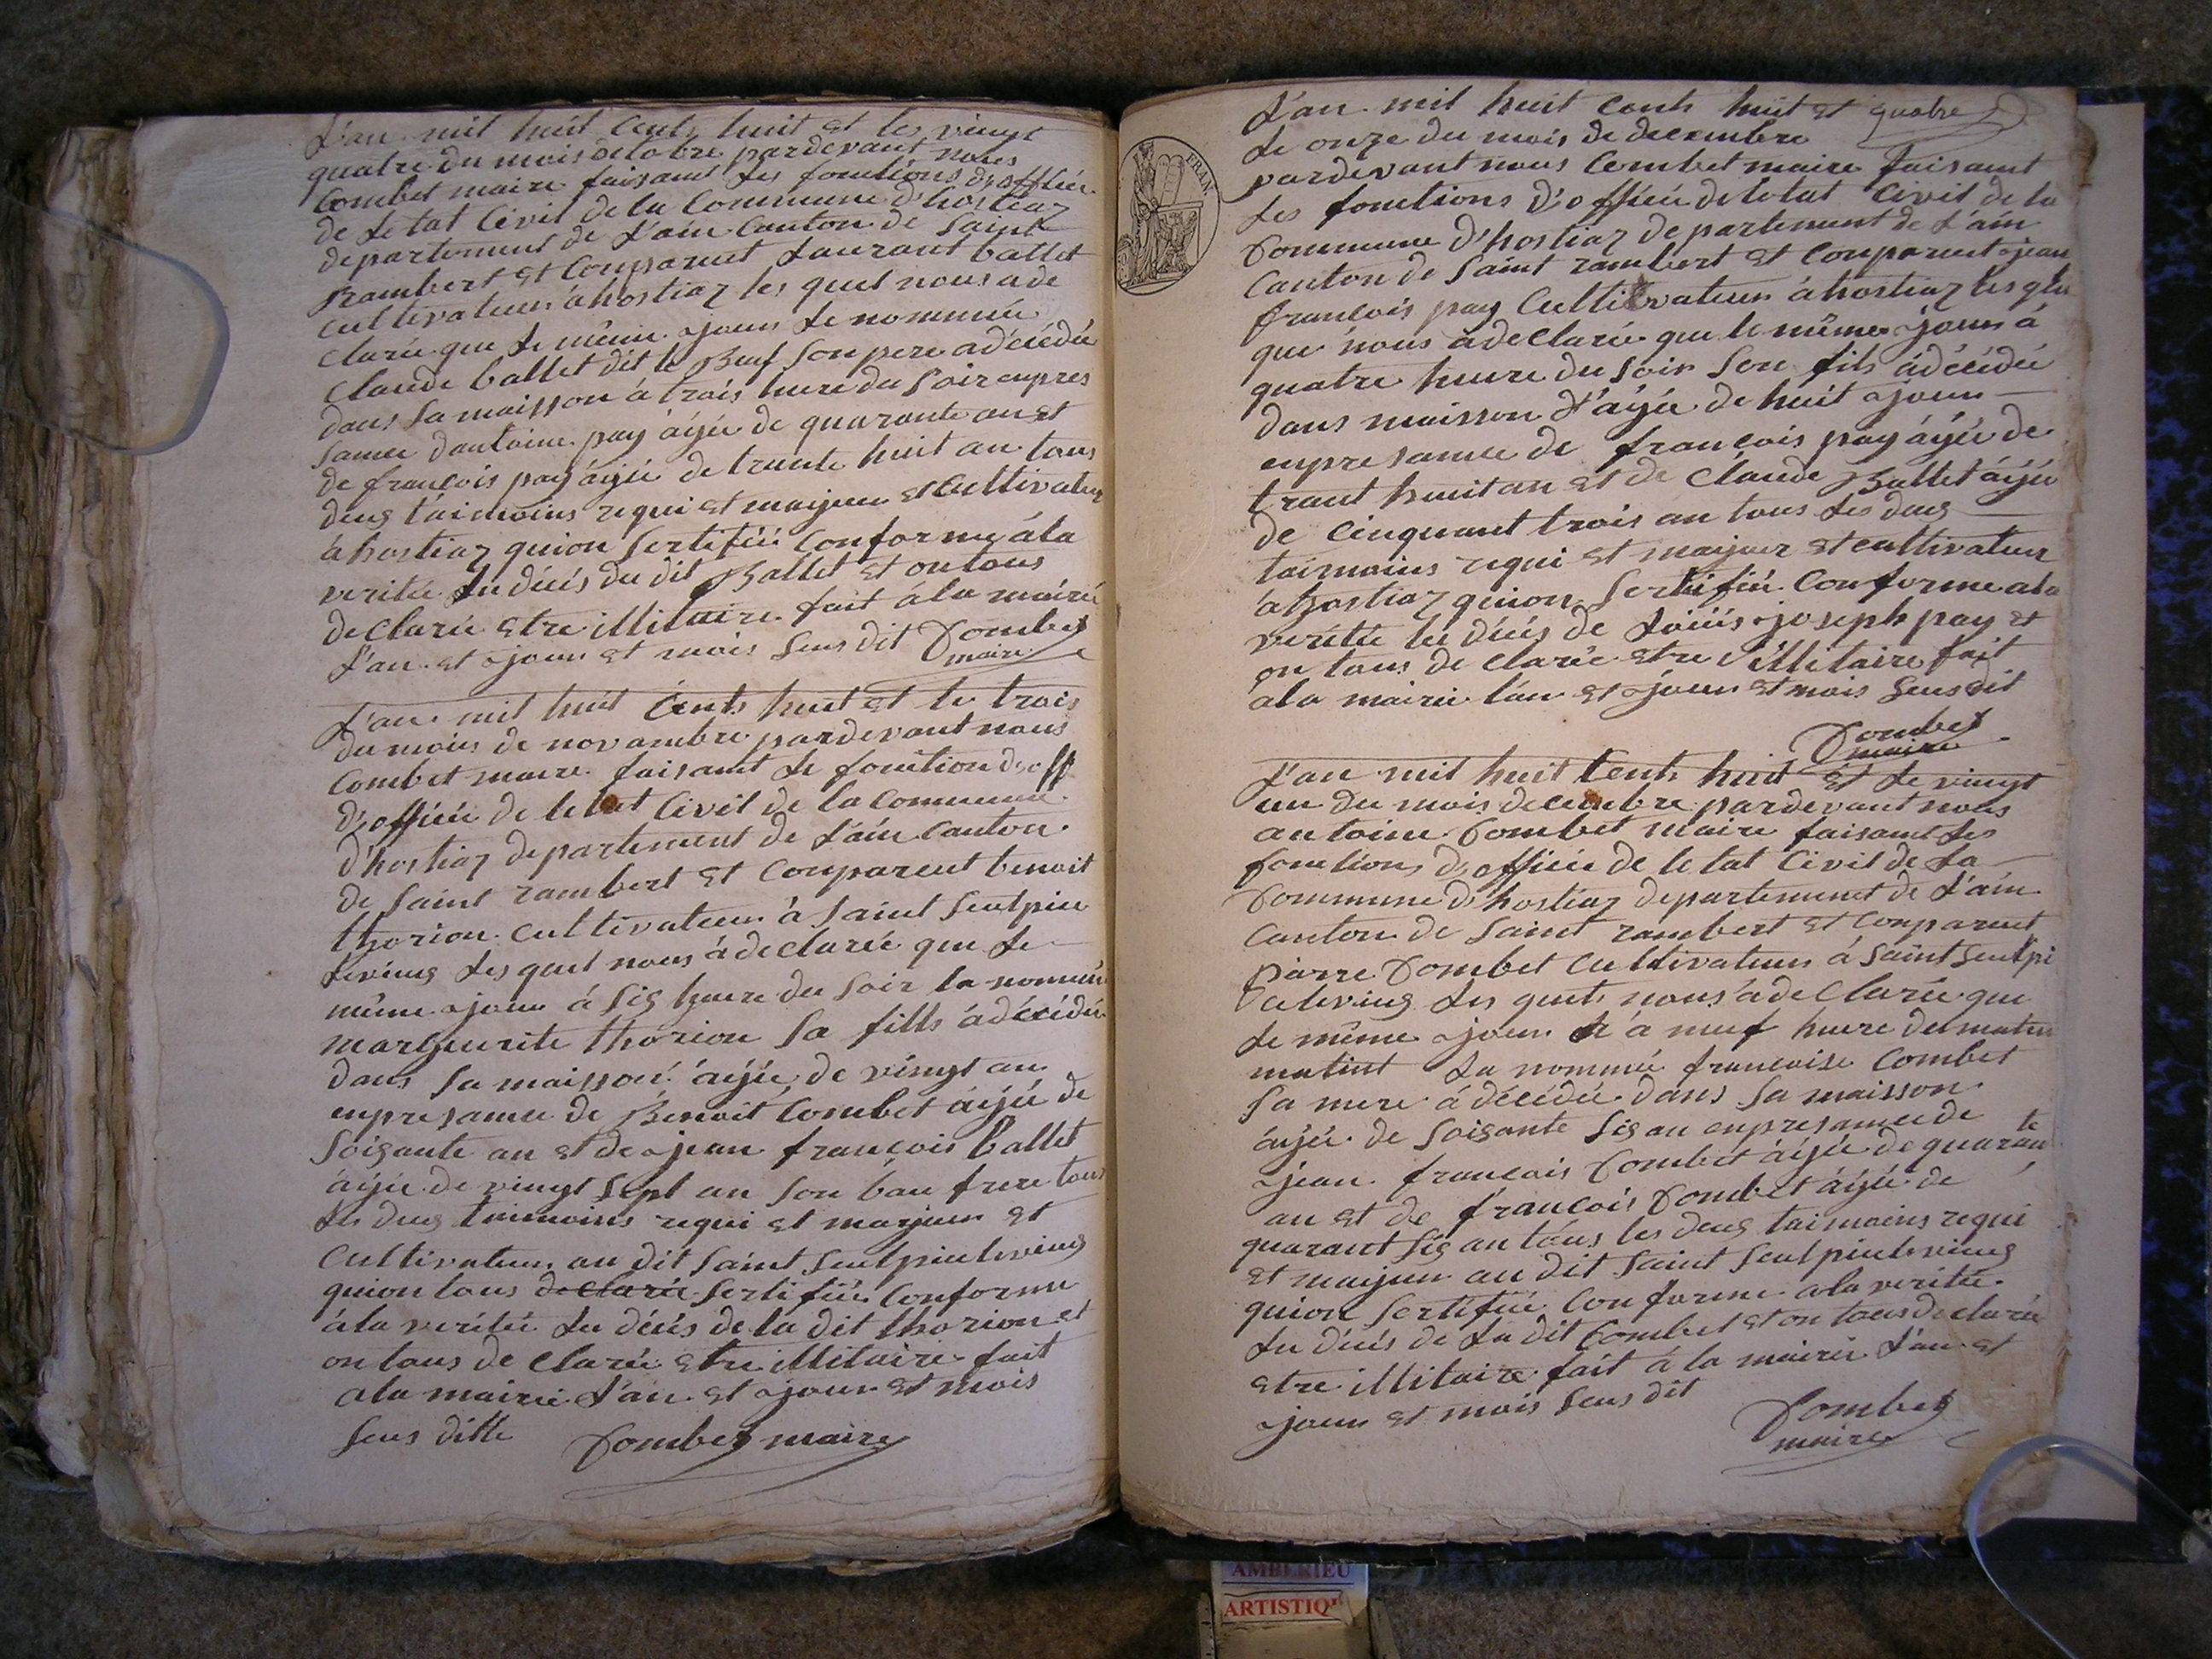 L'an mil huit Cents huit et les vingt
quatre du mois doctobre pardevant nous
Combet maire faisant les fonctions d'officié
de letat Civil de la Commune d'hostiaz
departement de L'ain Canton de Saint
Rambert et Comparuet Laurant ballet
Cultivateur áhostiaz les quel nous a de
Clarée que le même ajour le nommée
Claude ballet dit le Beuf Son pere adécédée
dans Sa maisson á trais hure du Soir enpres
Sance dantoine pay áyée de quarante an et
de francois pay áyée de trante huit an tous
deus táimoins requi et majeur et Cultivateur
áhostiaz quion Sertifiéé Conforme ála
veritée du décés du dit Ballet et on tous
de Clarée etre illitaire fait ála mairée
L'an et ajour et mois Sens dit Combet
maire
L'an mil huit Cents huit et le trais
du mois de novambre pardevant nous
Combet maire faisant le fonction d'off
d'officié de letat Civil de la Commune
d'hostiaz departement de L'ain Canton
de Saint rambert et Comparent benoit
thorion Cultivateur á Saint Seulpice
levieus Les quel nous á declarée que Le
même ajour á Sis hure du Soir la nommée
marguerite thorion Sa fills ádécédée
dans Sa maisson áyée de vingt an
enpresance de Benoit Combet áyée de
Soisante an et de ajean françois ballet
áyée de vingt Sept an Son bau frere tous
les deus taimoins requi et majeur et
Cultivateur au dit Saint Seulpice levieus
quion tous declarée Sertifiéé Conforme
ála veritée du décés de la dit thorion et
on tous de Clarée etre illitaire fait
ala mairie L'an et ajour et mois
Sens ditte Combet maire
L'an mil huit Cents huit et quatre
Le onze du mois de decembre
pardevant nous Combet maire faisant
les fonctions D'officié de letat Civil de la
Commune d'hostiaz departement de L'ain
Canton de Saint rambert et Comparuet ajean
françois pay Cultivateur áhostiaz les que
que nous á de Clarée que le même ajour á
quatre heure du Soir Son fils ádécédée
dans maisson d'áyée de huit ajour
enpresance de françois pay áyée de
trant huit an et de Claude Ballet áyée
de Cinquant trois an tous les deus
taimoins requi et majeur et cultivateur
áhostiaz quion Sertifiéé Conforme ala
verítée le décés de Loüis ajoseph pay et
on tous de Clarée etre illitaire fait
ála mairie lan et ajour et mois Sens dit
Combet
maire
FRAN.
L'an mil huit Cents huit et Le vingt
un du mois decembre pardevant nous
antoine Combet maire faisant les
fonctions d'officié de letat Civil de La
Commune d'hostiaz departement de L'ain
Canton de Saint rambert et Comparuet
piarre Combet Cultivateur á Saint Seulpi
Celevieus Les quels nous a de Clarée que
Le même ajour á neuf hure du matin
matint La nommé françoise Combet
Sa mere á décédée dans Sa maisson
áyée de Soisante Sis an enpresance de
ajean françois Combet áyée de quaran te
an et de françois Combet áyée de
quarant Sis an tous les deus taimoins requi
et majeur au dit Saint Seulpice levieus
quion Sertifiéé Conforme ala veritée
du décés de La dit Combet et on tous declarée
etre illitaire fait á la mairie L'an et
ajour et mois Sens dit
Combet
maire
AMBERIEU
ARTISTIQ